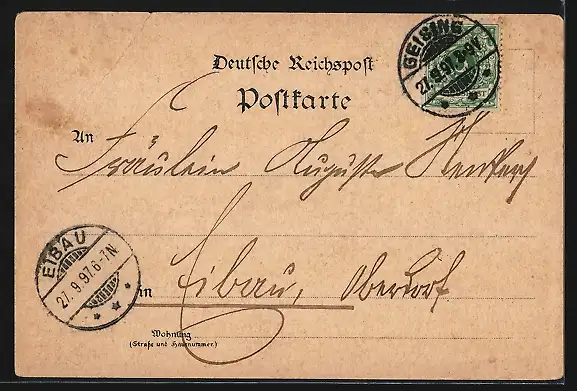 GEISING
27.9.97.8-9V.
Deutsche Reichspost
Postkarte
An
Fräulein Auguste
EIBAU
27.9.97.6-7N
in Eibau, Oberdorf
Wohnung
(Straße und Hausnummer.)